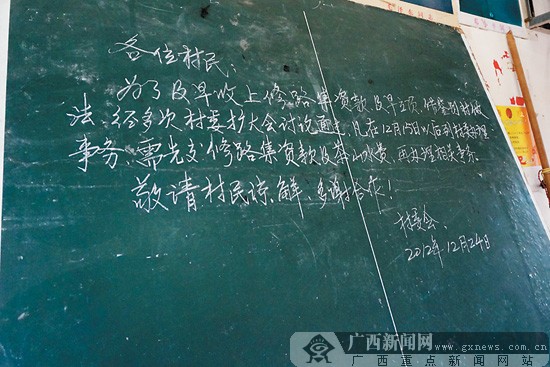 各位村民：
为了及早收上修路集资款及早立项，借鉴别村做
法、经多次村委扩大会讨论通过，凡在12月15日以后到村委办理
事务、需先交修路集资款及茶山水费，再办理相关事务。
敬请村民谅解、多谢合作！
村委会、
2012年12月24日
广西新闻网
www.gxnews.com.cn
广西重点新闻网站